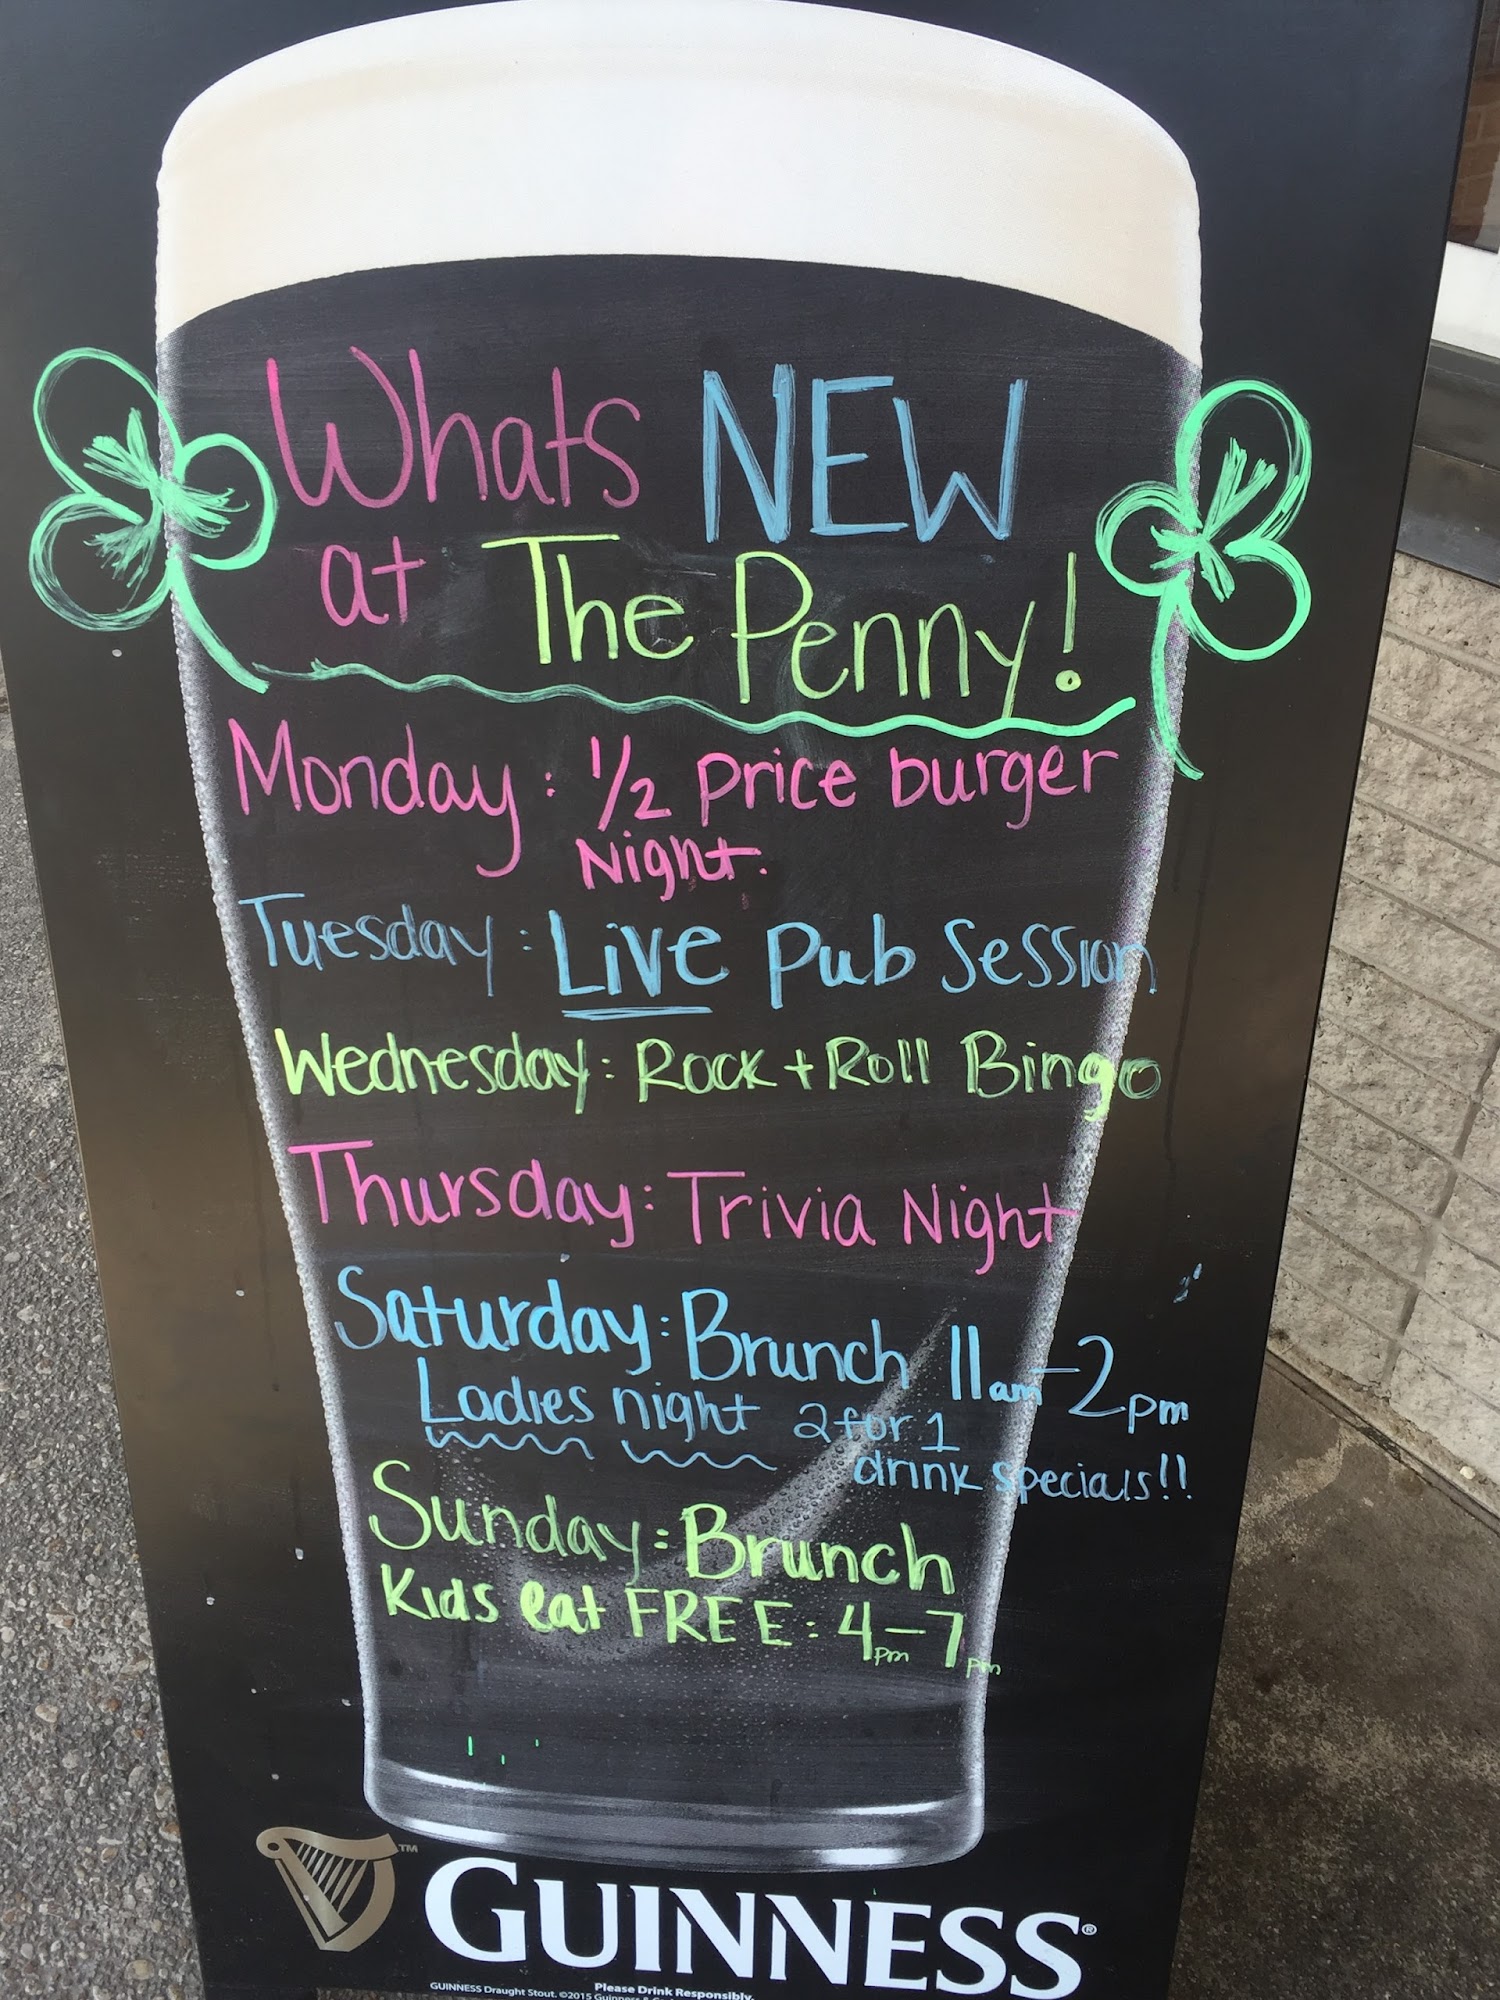 Whats NEW
at The Penny!
Monday: 1/2 price burger
Night.
Tuesday: Live Pub Session
Wednesday: Rock + Roll Bingo
Thursday: Trivia Night
Saturday: Brunch 11am-2pm
Ladies night 2 for 1
drink specials!!
Sunday: Brunch
Kids eat FREE: 4pm-7pm
TM
GUINNESS®
GUINNESS Draught Stout. ©2015 Guinness &
Please Drink Responsibly.